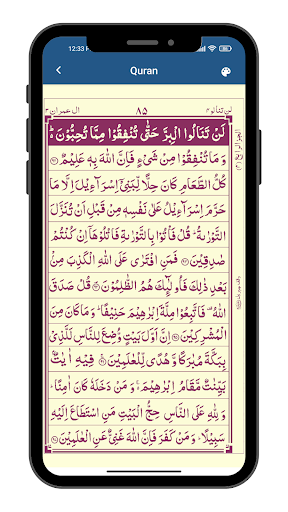 12:33 P
Quran
ال عمران ۳
۸۵
لن تنالو ۴
لَنْ تَنَالُوا الْبِرَّ حَتّٰى تُنْفِقُوْا مِمَّا تُحِبُّوْنَ ؕ
وَمَا تُنْفِقُوْا مِنْ شَىْءٍ فَاِنَّ اللّٰهَ بِهٖ عَلِيْمٌ
كُلُّ الطَّعَامِ كَانَ حِلًّا لِّبَنِىْۤ اِسْرَآءِيْلَ اِلَّا مَا
حَرَّمَ اِسْرَآءِيْلُ عَلٰى نَفْسِهٖ مِنْ قَبْلِ اَنْ تُنَزَّلَ
التَّوْرٰىةُ ؕ قُلْ فَاْتُوْا بِالتَّوْرٰىةِ فَاتْلُوْهَاۤ اِنْ كُنْتُمْ
صٰدِقِيْنَ فَمَنِ افْتَرٰى عَلَى اللّٰهِ الْكَذِبَ مِنْۢ
بَعْدِ ذٰلِكَ فَاُولٰٓئِكَ هُمُ الظّٰلِمُوْنَ قُلْ صَدَقَ
اللّٰهُ فَاتَّبِعُوْا مِلَّةَ اِبْرٰهِيْمَ حَنِيْفًا ؕ وَمَا كَانَ مِنَ
الْمُشْرِكِيْنَ اِنَّ اَوَّلَ بَيْتٍ وُّضِعَ لِلنَّاسِ لَلَّذِىْ
بِبَكَّةَ مُبٰرَكًا وَّهُدًى لِّلْعٰلَمِيْنَ فِيْهِ اٰيٰتٌۢ
بَيِّنٰتٌ مَّقَامُ اِبْرٰهِيْمَ ۚ وَمَنْ دَخَلَهٗ كَانَ اٰمِنًا ؕ
وَلِلّٰهِ عَلَى النَّاسِ حِجُّ الْبَيْتِ مَنِ اسْتَطَاعَ اِلَيْهِ
سَبِيْلًا ؕ وَمَنْ كَفَرَ فَاِنَّ اللّٰهَ غَنِىٌّ عَنِ الْعٰلَمِيْنَ